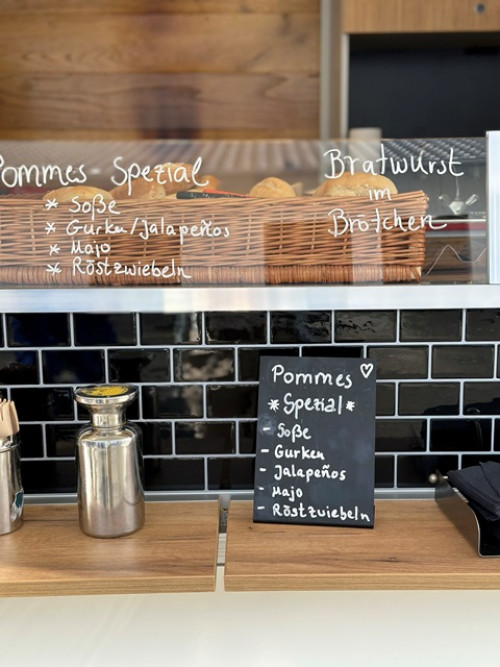 Pommes Spezial
* Soße
* Gurken/Jalapeños
* Majo
* Röstzwiebeln
Bratwurst
im
Brötchen
Pommes ♡
* Spezial *
- Soße
- Gurken
- Jalapeños
- Majo
- Röstzwiebeln